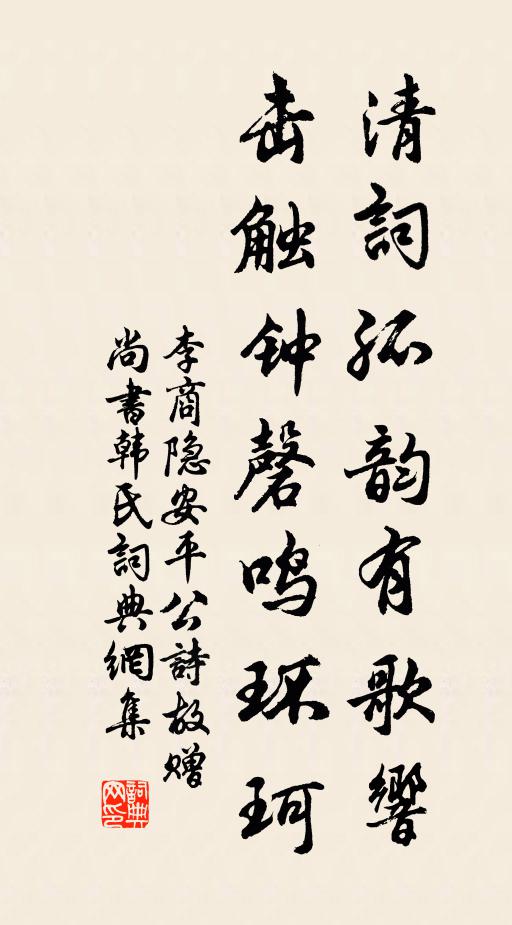 清詞孤韵有歌響
击触钟磬鸣环珂
李商隐安平公詩故赠
尚書韩氏詞典網集
詞典网印